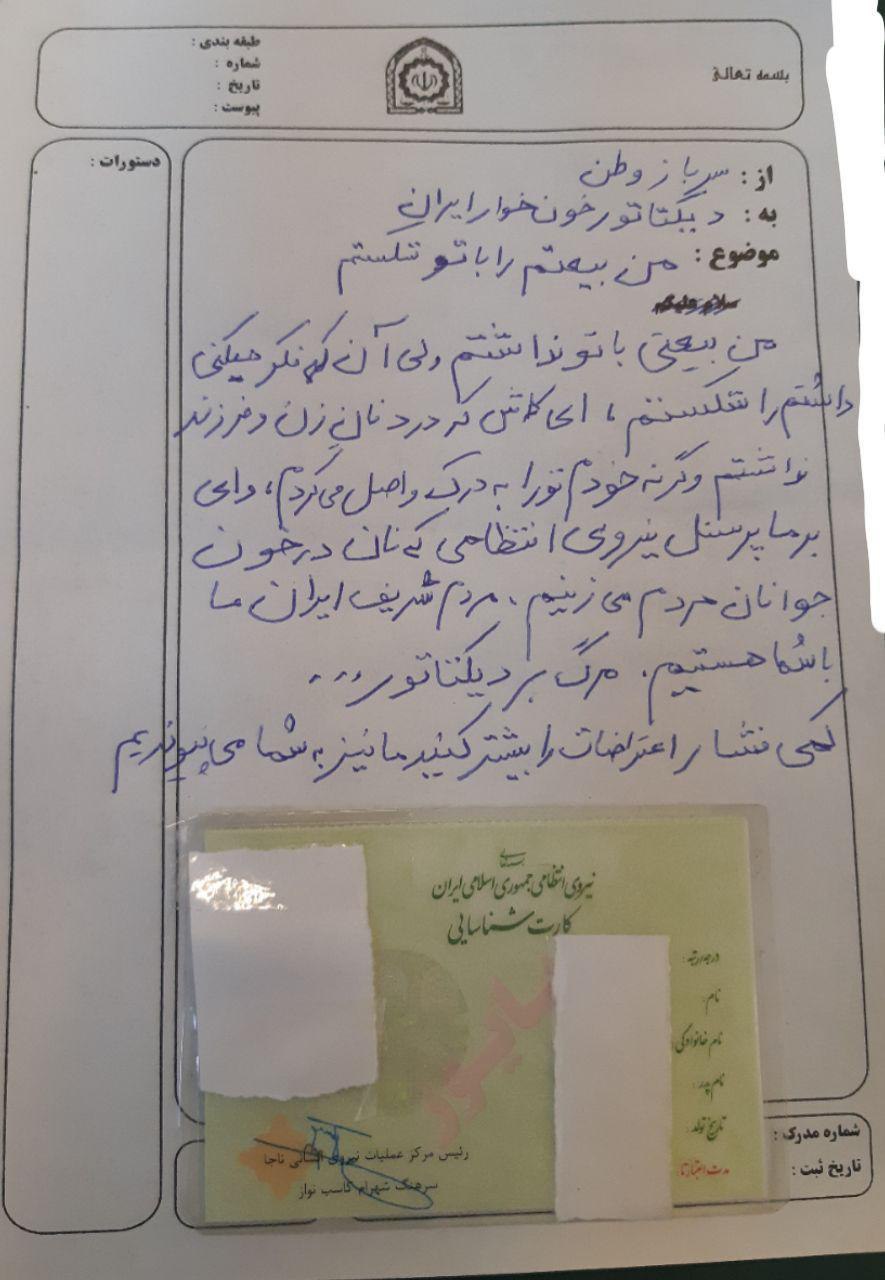 بسمه تعالی
طبقه بندی :
شماره :
تاریخ :
پیوست :
دستورات :
از : سرباز وطن
به : دیکتاتور خون خوار ایران
موضوع : من بیعتم را با تو شکستم
من بیعتی با تو نداشتم ولی آن که فکر میکنی
داشتم را شکستم ، ای کاش که درد نان زن و فرزند
نداشتم وگرنه خودم تو را به درک واصل می کردم ، وای
بر ما پرسنل نیروی انتظامی که نان در خون
جوانان مردم می زنیم . مردم شریف ایران ما
با شما هستیم . مرگ بر دیکتاتور ...
کمی فشار اعتراضات را بیشتر کنید ما نیز به شما می پیوندیم
نیروی انتظامی جمهوری اسلامی ایران
کارت شناسایی
درجه/رتبه :
نام :
نام خانوادگی :
نام پدر :
تاریخ تولد :
مدت اعتبار تا :
رئیس مرکز عملیات نیروی انسانی ناجا
سرهنگ شهرام کاسب نواز
شماره مدرک :
تاریخ ثبت :